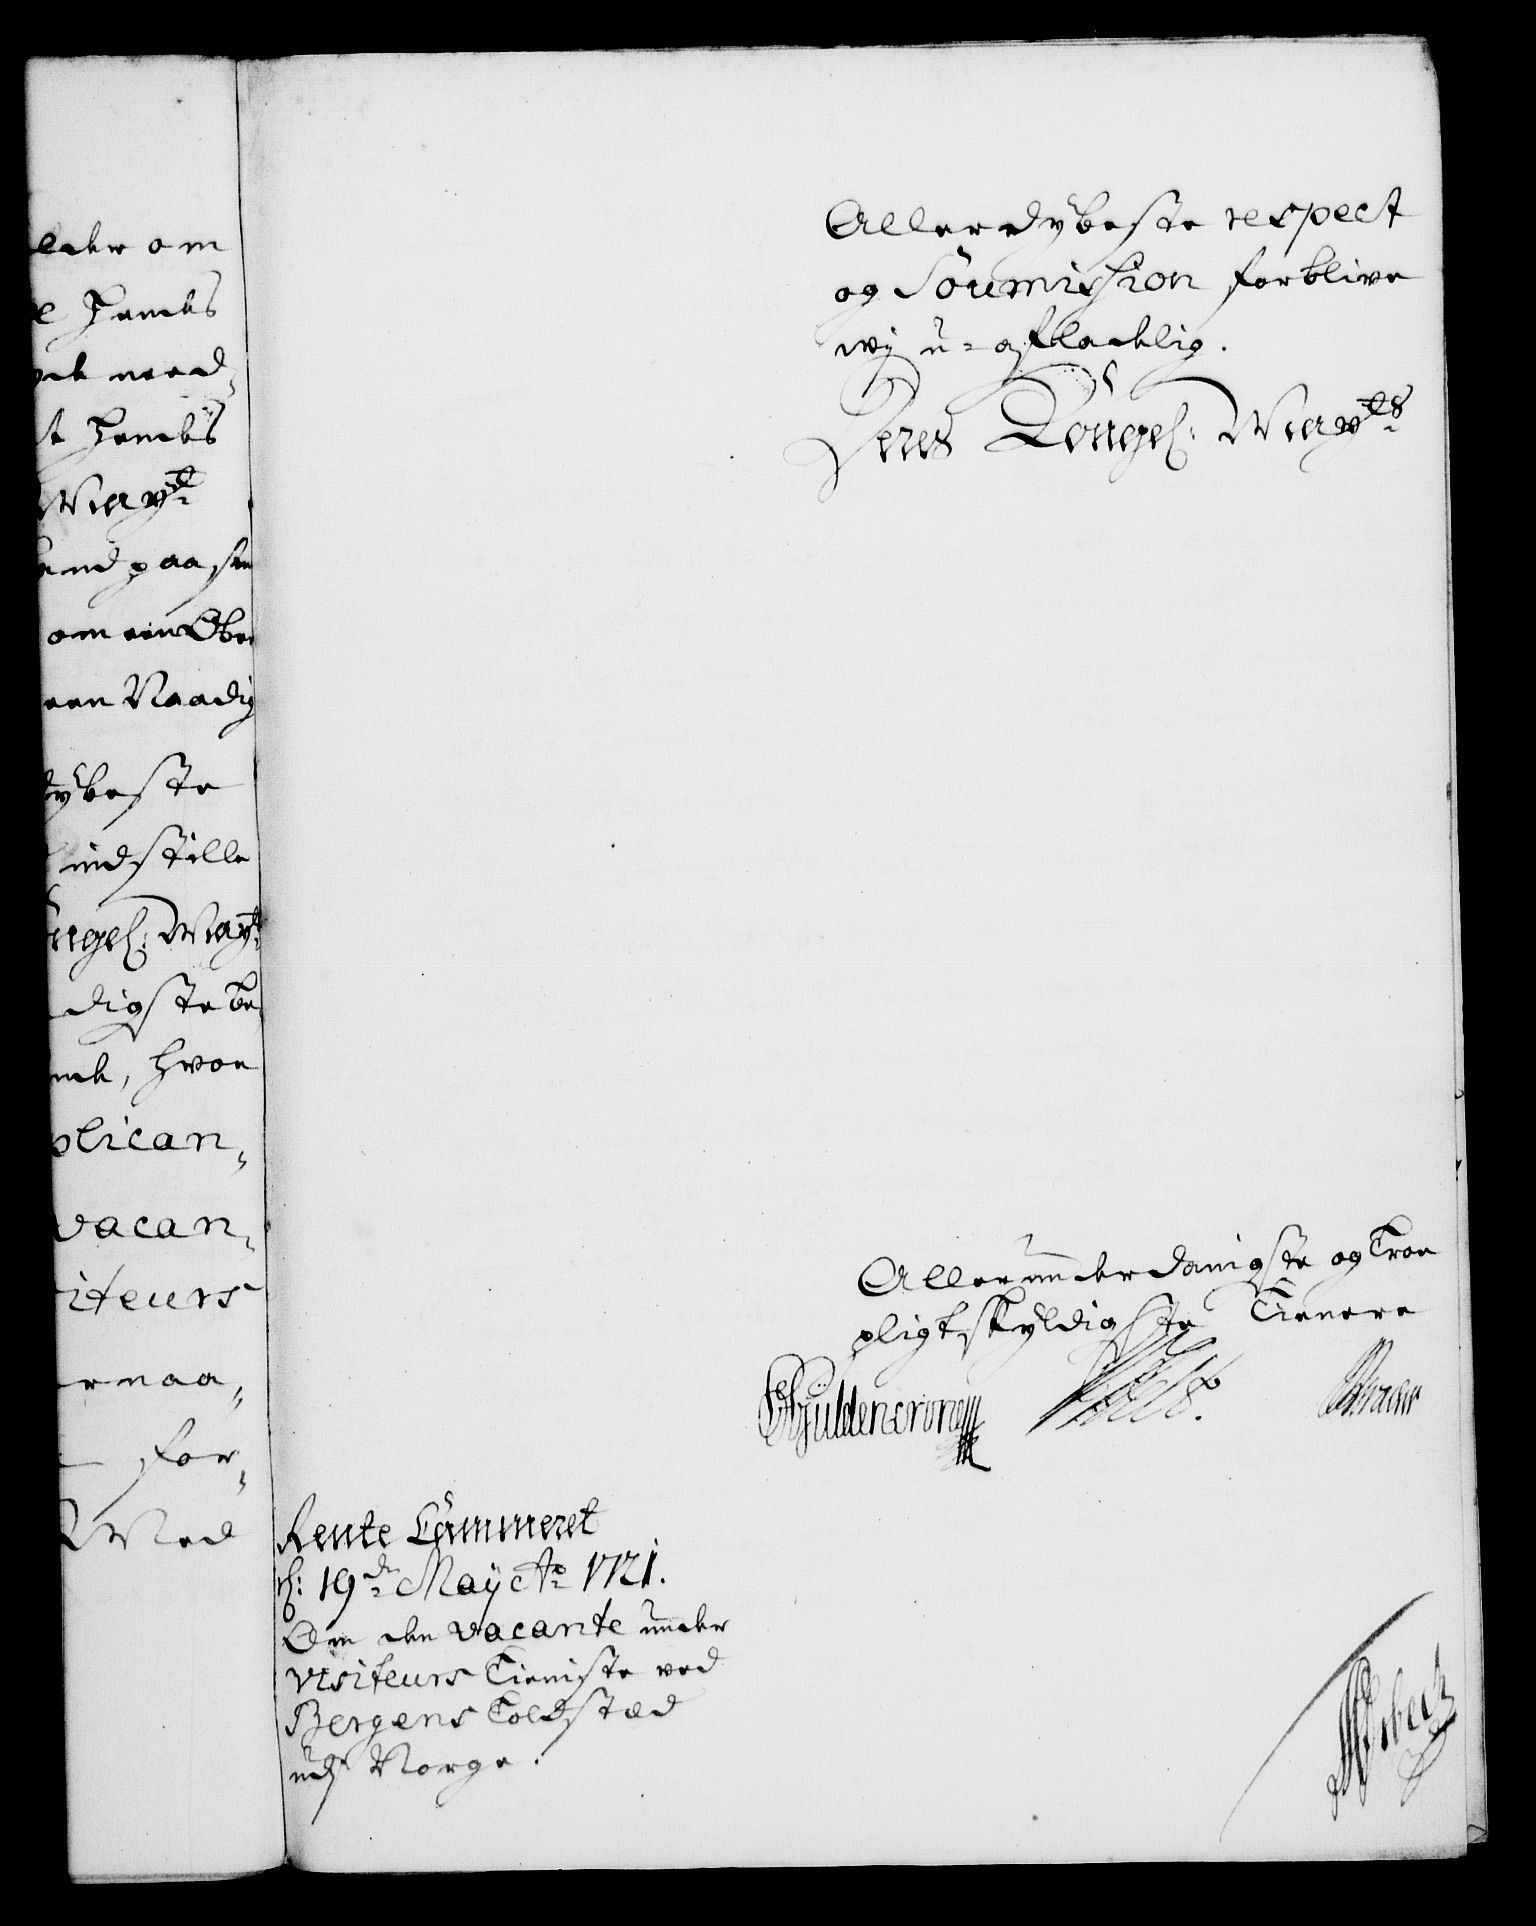 om
hands
need
hands
May.tt
paa
om een
een Naadig
dybeste
indstille
ngel: May.tt
digste be
hvor
plican,
vacan,
iteurs
naa,
for,
Med
Allerdybeste respect
og Soumission forblive
wij u-afladelig.
Deres Kongel: May.ts
Allerunderdanigste og Troe
pligtskyldigste Tienere
Gyldencrone
Rente Cammeret
d: 19.de Maij Ao 1721.
Om den vacante under
visiteurs Tieniste ved
Bergens Toldsted
udj Norge.